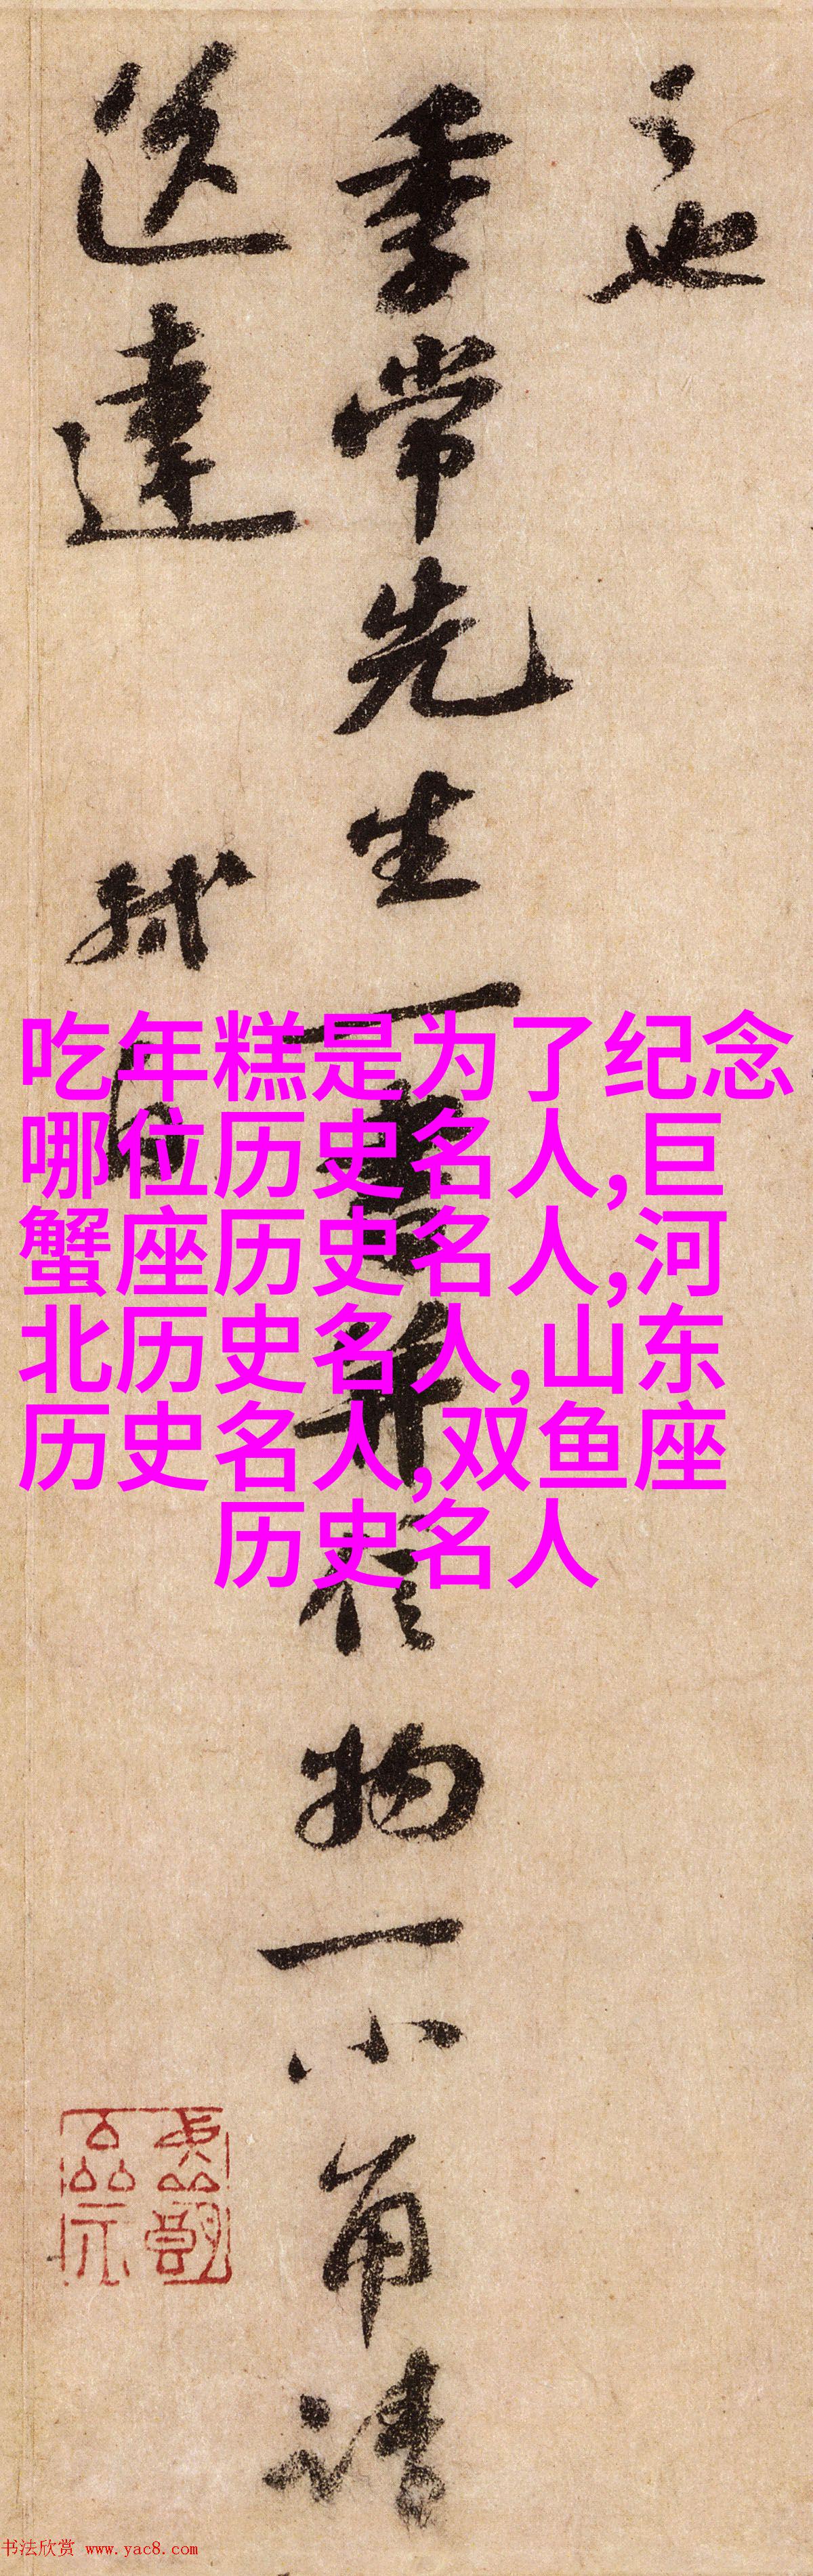 之也
季常先生一書并信物一小角請
送達
軾白
吃年糕是为了纪念
哪位历史名人,巨
蟹座历史名人,河
北历史名人,山东
历史名人,双鱼座
历史名人
书法欣赏 www.yac8.com